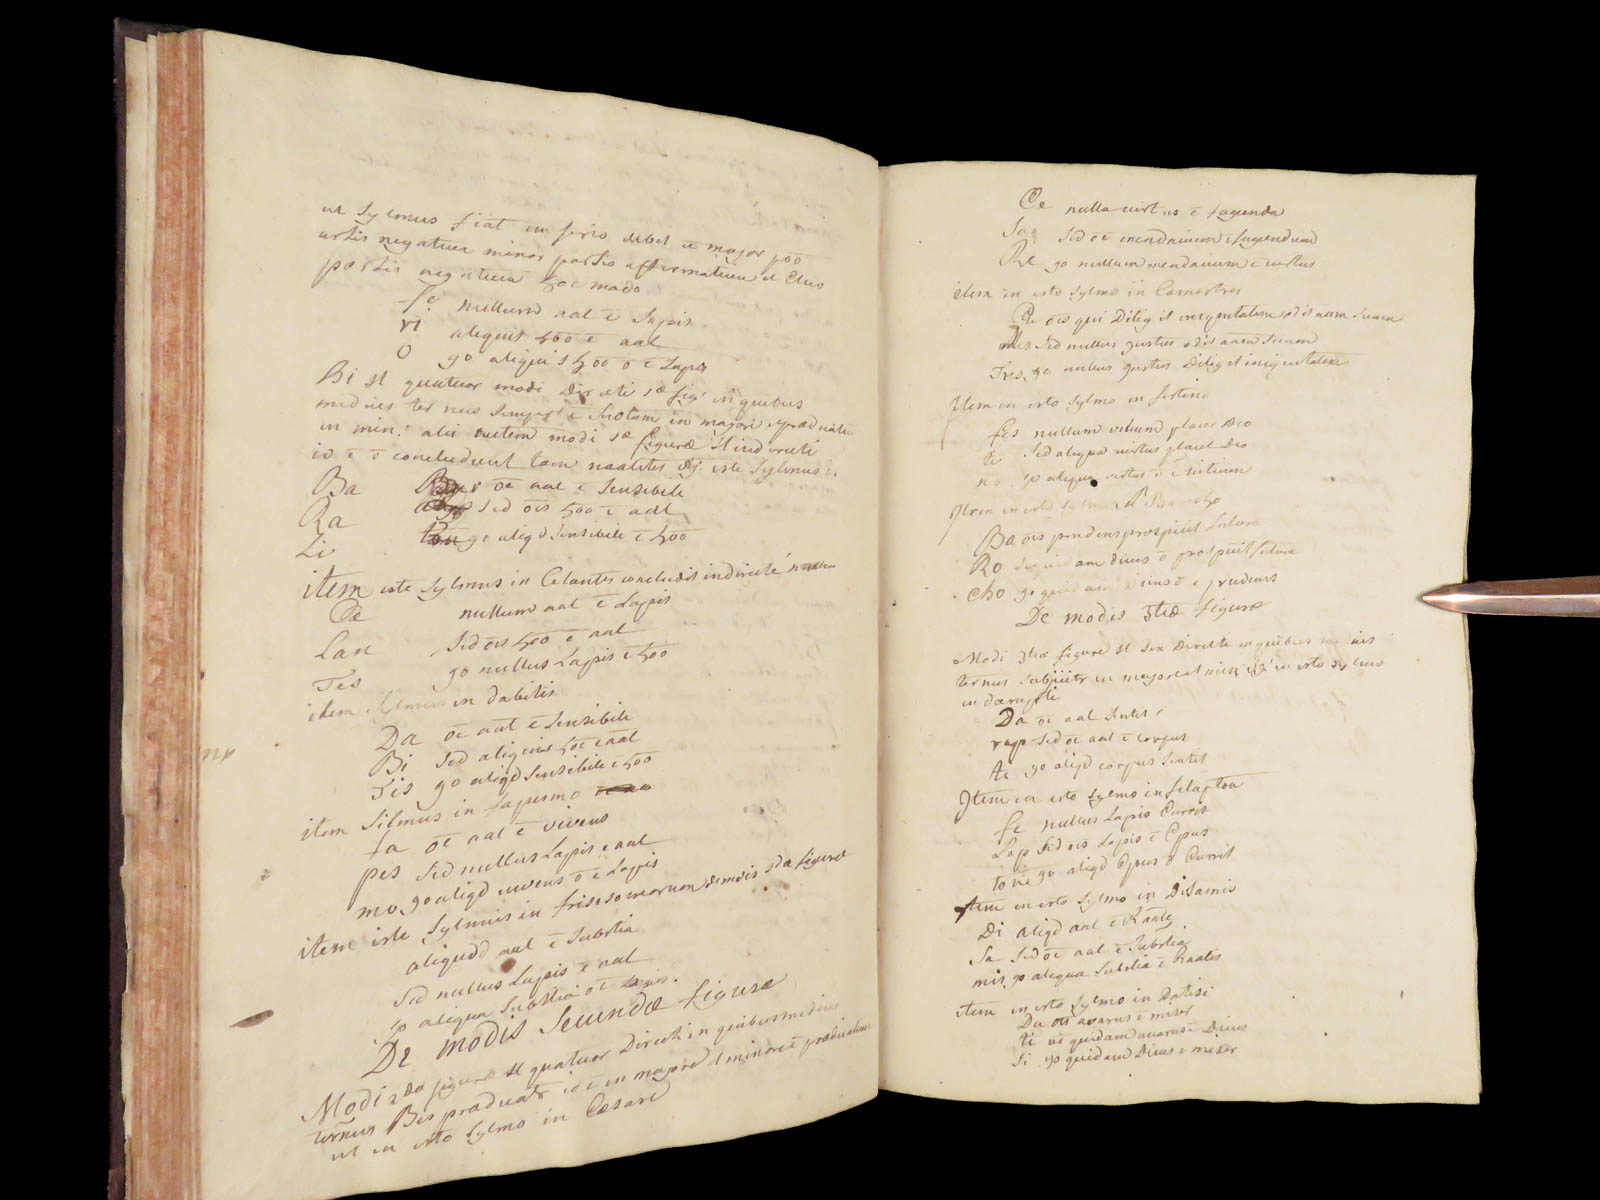 ut Sylmus fiat in ferio debet ē major poō
artis negativa minor partis affirmativa et Clus
partis negativa hoc modo
fe nullum aal ē Lapis
ri aliquis hoō ē aal
o go aliquis hoō o ē Lapis
Hi st quatuor modi directi æ fig in quibus
medius ter nus semper ē Subtum in majori et prædicatu
in min. alii autem modi æ figuræ st indirecti
concludunt tam iste Sylmus
Ba oē aal ē Sensibile
Ra Sed oīs hoō ē aal
Li go aliqd Sensibile ē hoō
item iste Sylmus in Celantes concludit indirecté
Ce nullum aal ē Lapis
Lan Sed oīs hoō ē aal
Tes go nullus Lapis ē hoō
item Sylmus in dabitis
Da oē aal ē Sensibile
Bi Sed aliquis hoē ē aal
Tis go aliqd Sensibile ē hoō
item Silmus in fapesmo
fa oē aal ē vivens
pes Sed nullus Lapis ē aal
mo, go aliqd vivens ō ē Lapis
item iste Sylmus in frisesomorum de modis 2dæ figuræ
aliquod aal ē Substia
Sed nullus Lapis ē aal
go aliqua Substia ō ē Lapis.
De modis Secundæ figuræ
Modi 2dæ figuræ st quatuor Directi in quibus medius
terñus Bis prædicatr id ē in majore et minore ē prædicatum
ut in isto Sylmo in Cesare
Ce nulla virtus ē fugienda
Sa Sed oē mendacium ē fugiendum
Re go nullum mendacium ē virtus
item in isto Sylmo in Camestres
Ca oīs qui Diligit iniquitatem odit aam Suam
mes Sed nullus justus odit aam Suam
Tres, go nullus justus Diligit iniquitatem
Item in isto Sylmo in festino
fes nullum vitium placet Deo
ti Sed aliqua virtus placet Deo
no go aliqua virtus ō ē vitium
Item in isto Sylmo Baroco
Ba oīs prudens prospicit futura
Ro Sed quidam dives ō prospicit futura
cho go quidam Dives ō ē prudens
De modis 3tiæ figuræ
Modi 3tiæ figuræ st Sex Directi in quibus medius
ternus Subjicitr in majore et min ut in isto sylmo
in darapti
Da oē aal Sentit
rap Sed oē aal ē corpus
ti go aliqd corpus Sentit
Item in isto Sylmo in felapton
fe nullus Lapis Currit
Lap Sed oīs Lapis ē Cpus
ton go aliqd Cpus ō Currit
Item in isto Sylmo in Disamis
Di aliqd aal ē Raale
Sa Sed oē aal ē Substia
mis, go aliqua Substia ē Raalis
item in isto Sylmo in Datisi
Da oīs avarus ē miser
ti quidam avarus ē Dives
Si go quidam Dives ē miser